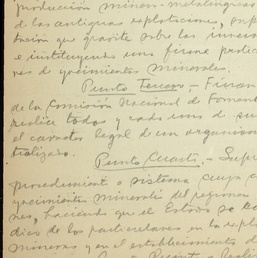 producción minero-metalúrgica
de las antiguas explotaciones,
tación que gravite sobre las
e instituyendo una firme
nes de yacimientos minerales.
Punto Tercero.-
de la Comisión Nacional de Foment
realice todos y cada uno de su
el carácter legal de un organism
tralizado.
Punto Cuarto.- Supr
procedimiento o sistema cuya
yacimientos minerales del
nes, haciendo que el Estado se
dico de los particulares en la expl
mineras y en el establecimiento d